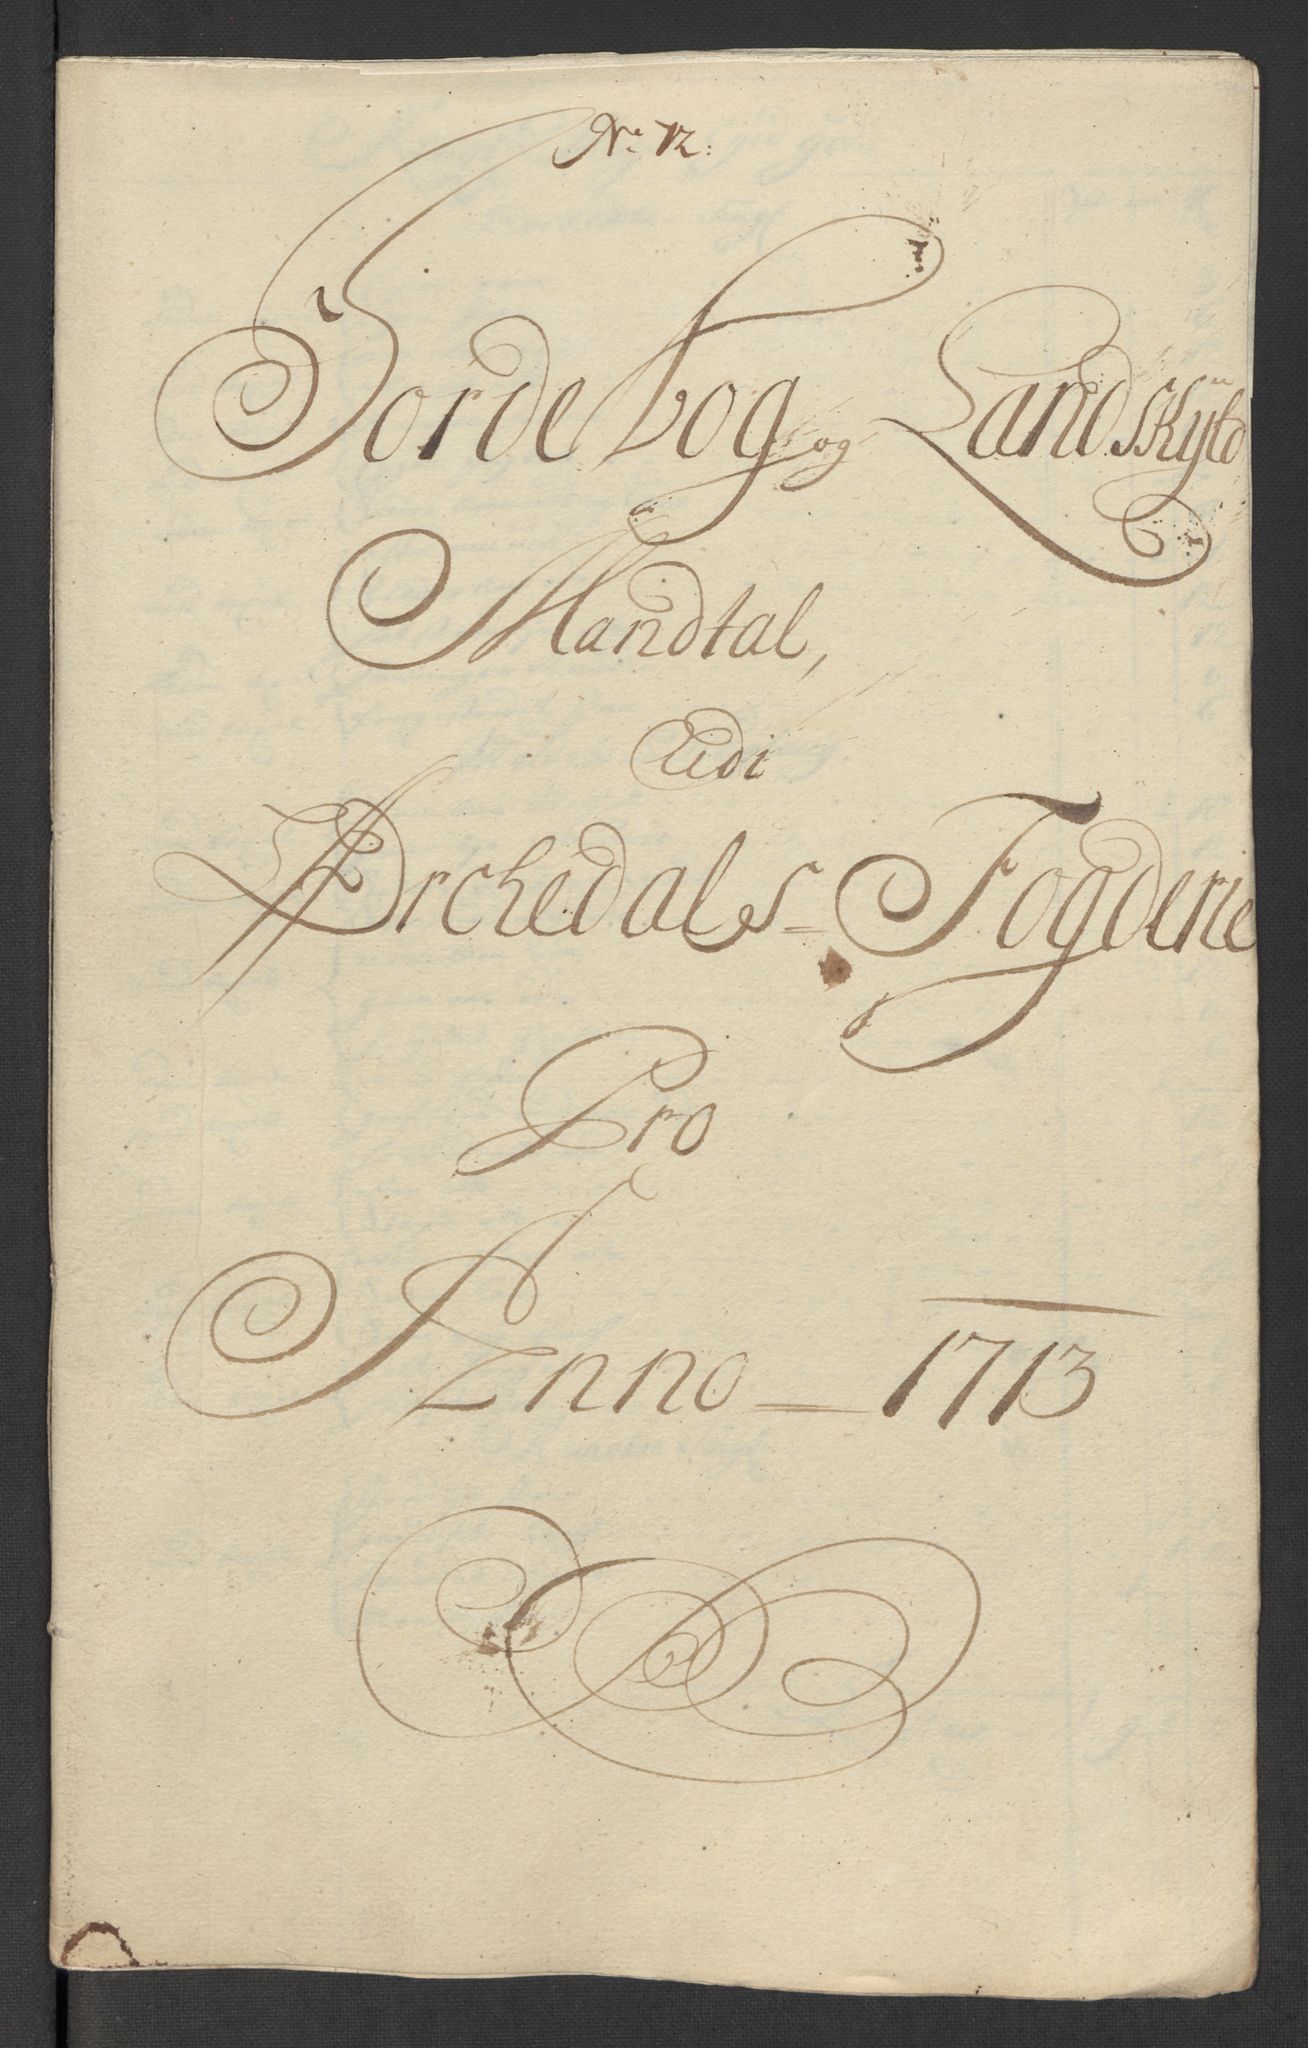 No 12:
Jordebog og Landskÿld
Mandtal,
Udi
Orchedals= Fogderie
Pro
Anno = 1713